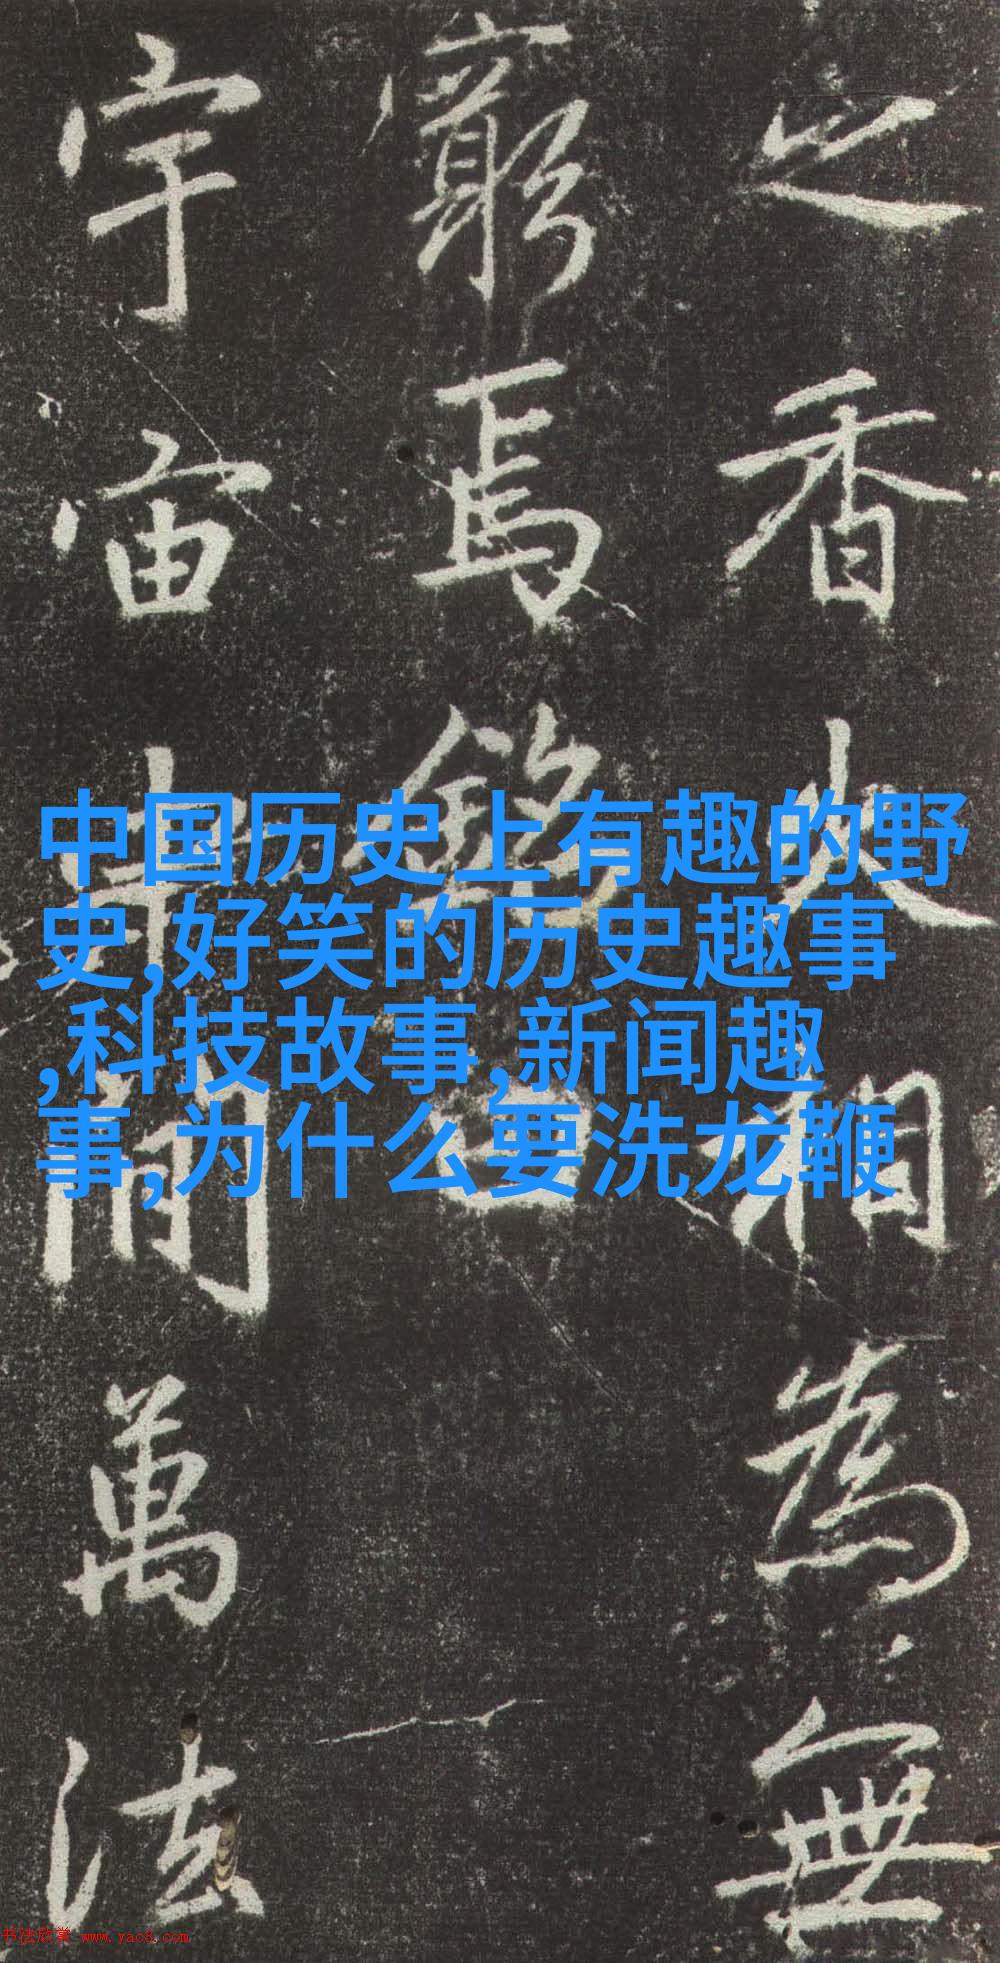 之香火相為無
窮焉銘曰
宇宙中間萬法
中国历史上有趣的野
史,好笑的历史趣事
,科技故事,新闻趣
事,为什么要洗龙鞭
书法欣赏 www.yac8.com